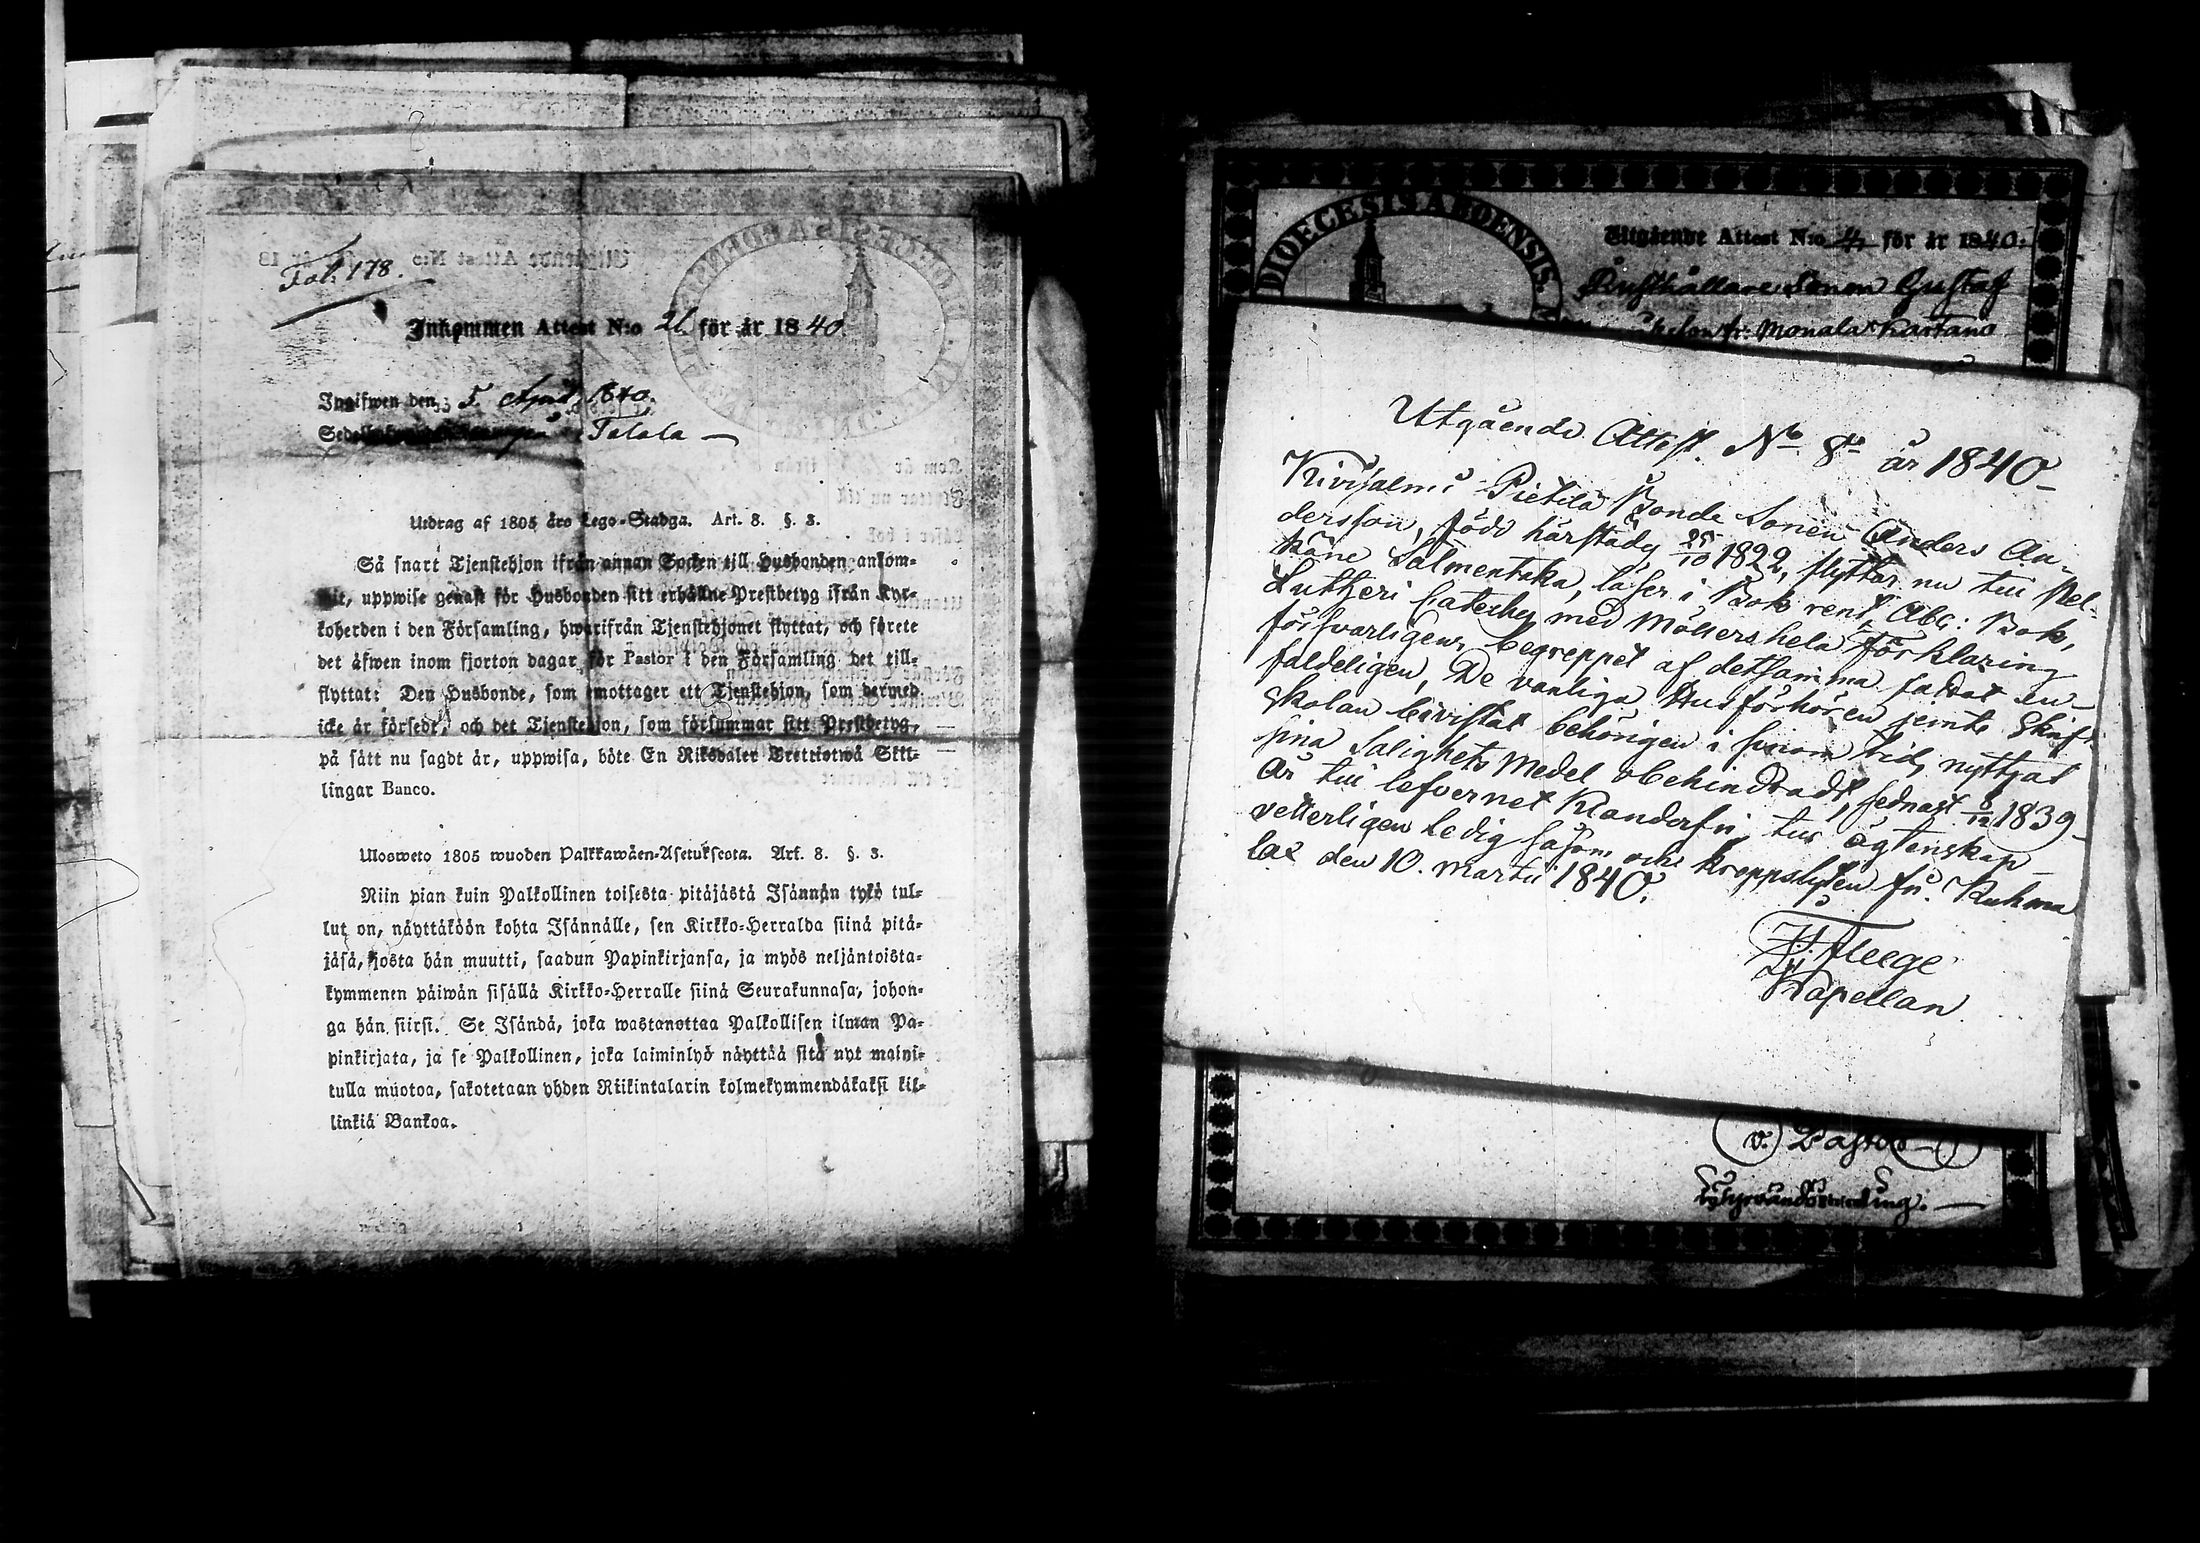 Fol. 178.
Inkommen Attest N:o 21 för år 1840.
Ingifwen den 5 April 1840.
Talala
Utdrag af 1805 års Lego-Stadga. Art. 8. §. 3.
Så snart Tjenstehjon ifrån annan Socken till Husbonden ankom-
mit, uppwise genast för Husbonden sitt erhållne Prestbetyg ifrån Kyr-
koherden i den Församling, hwarifrån Tjenstehjonet flyttat, och förete
det äfwen inom fjorton dagar för Pastor i den Församling det till-
flyttat: Den Husbonde, som emottager ett Tjenstehjon, som dermed
icke är försedt, och det Tjenstehjon, som försummar sitt Prestbetyg,
på sätt nu sagdt är, uppwisa, böte En Riksdaler Trettiotwå Skil-
lingar Banco.
Ulosweto 1805 wuoden Palkkawäen-Asetuksesta. Art. 8. §. 3.
Niin pian kuin Palkollinen toisesta pitäjästä Isännän tykö tul-
lut on, näyttäköön kohta Isännälle, sen Kirkko-Herralda siinä pitä-
jäsä, josta hän muutti, saadun Papinkirjansa, ja myös neljäntoista-
kymmenen päiwän sisällä Kirkko-Herralle siinä Seurakunnasa, johon-
ga hän siirsi. Se Isändä, joka wastanottaa Palkollisen ilman Pa-
pinkirjata, ja se Palkollinen, joka laiminlyö näyttää sitä nyt maini-
tulla muotoa, sakotetaan yhden Riikintalarin kolmekymmendäkaksi kil-
linkiä Bankoa.
DIOECESIS ABOENSIS.
Utgående Attest N:o 4 för år 1840.
Rusthållare Sonen Gustaf
fr: Monala Kartano
Utgående Attest. No 8 år 1840
Kivisalmi Pietilä Bonde Sonen Anders An-
dersson, född härstädes 25/10 1822, flyttar nu till Pel-
käne Salmentaka, läser i Bok rent, Abc: Bok,
Lutheri Cateches med Möllers hela Förklaring
försvarligen, begreppet af detsamma fattat en-
faldeligen, De vanliga Husförhören jemte Skrift
Skolan bivistat behörigen i sinom tid, nyttjat
sina Salighets Medel obehindradt, sednast 8/12 1839
Är till lefvernet Klanderfri, till ägtenskap
vetterligen Ledig såsom och kroppslyten fri. Kuhma
lax den 10. Martii 1840.
Fleege
Kapellan
v. Pastor